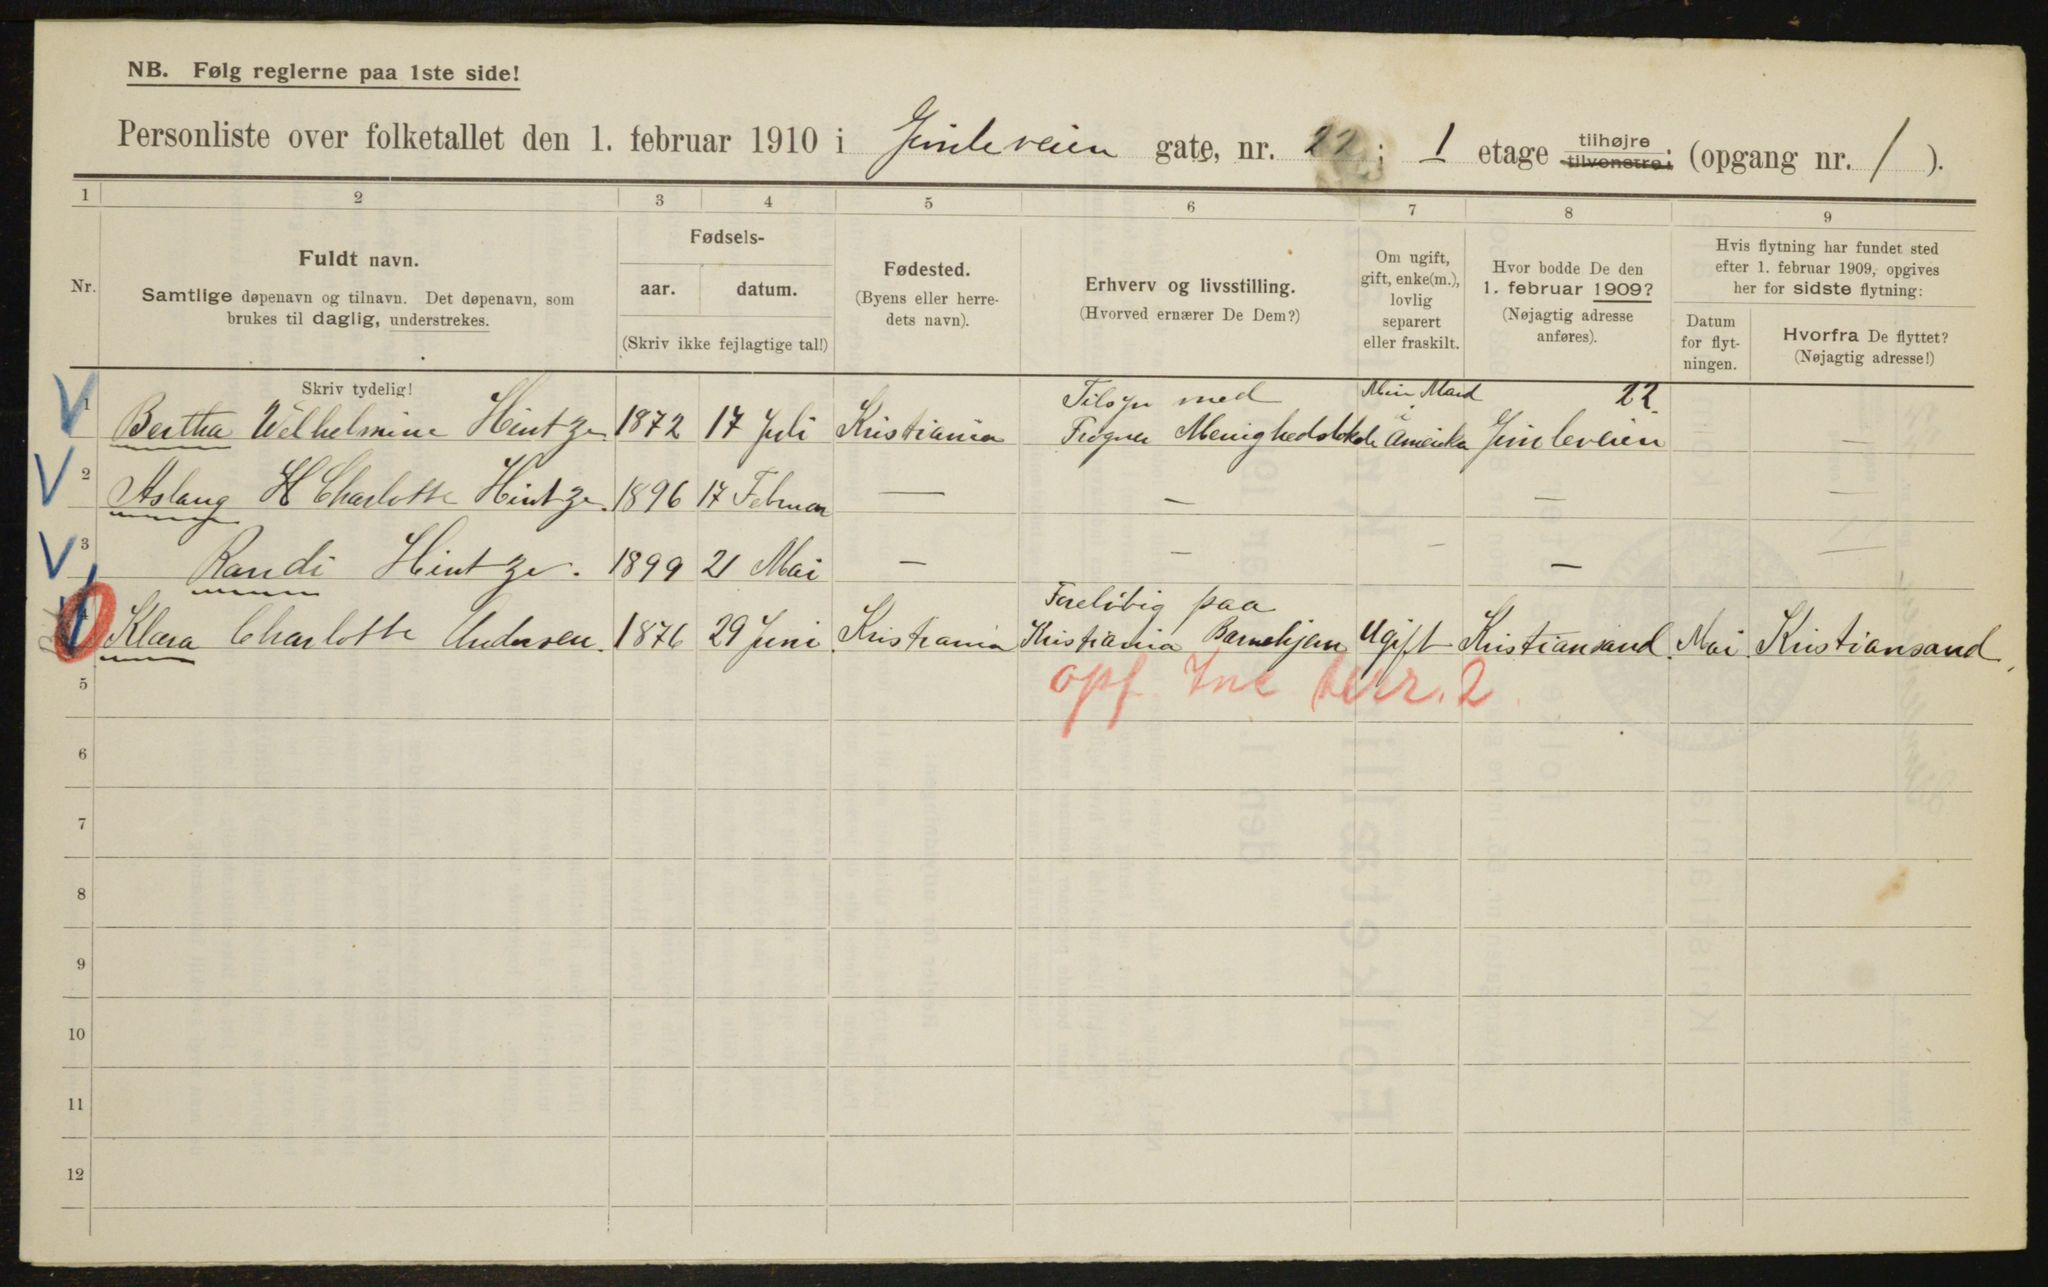 NB. Følg reglerne paa 1ste side!
Personliste over folketallet den 1. februar 1910 i Gimleveien gate, nr. 22; 1 etage tilhøjre tilvenstre; (opgang nr. 1).
1 2 3 4 5 6 7 8 9
Nr.
Fuldt navn.
Samtlige døpenavn og tilnavn. Det døpenavn, som
brukes til daglig, understrekes.
Skriv tydelig!
Fødsels-
aar. datum.
(Skriv ikke fejlagtige tal!)
Fødested.
(Byens eller herre-
dets navn).
Erhverv og livsstilling.
(Hvorved ernærer De Dem?)
Om ugift,
gift, enke(m.),
lovlig
separert
eller fraskilt.
Hvor bodde De den
1. februar 1909?
(Nøjagtig adresse
anføres).
Hvis flytning har fundet sted
efter 1. februar 1909, opgives
her for sidste flytning:
Datum
for flyt-
ningen.
Hvorfra De flyttet?
(Nøjagtig adresse!)
Tilsyn med Min Mand 22.
1 Bertha Wilhelmine Hintze 1872 17 Juli Kristiania Frogner Menighedslokale i Amerika Gimleveien —
2 Aslaug H Charlotte Hintze. 1896 17 Februar — — — —
3 Randi Hintze. 1899 21 Mai — — — — —
Foreløbig paa
4 Klara Charlotte Andersen. 1876 29 Juni Kristiania Kristiania Barnehjem Ugift Kristiansand Mai Kristiansand,
opf. terr. 2
5
6
7
8
9
10
11
12